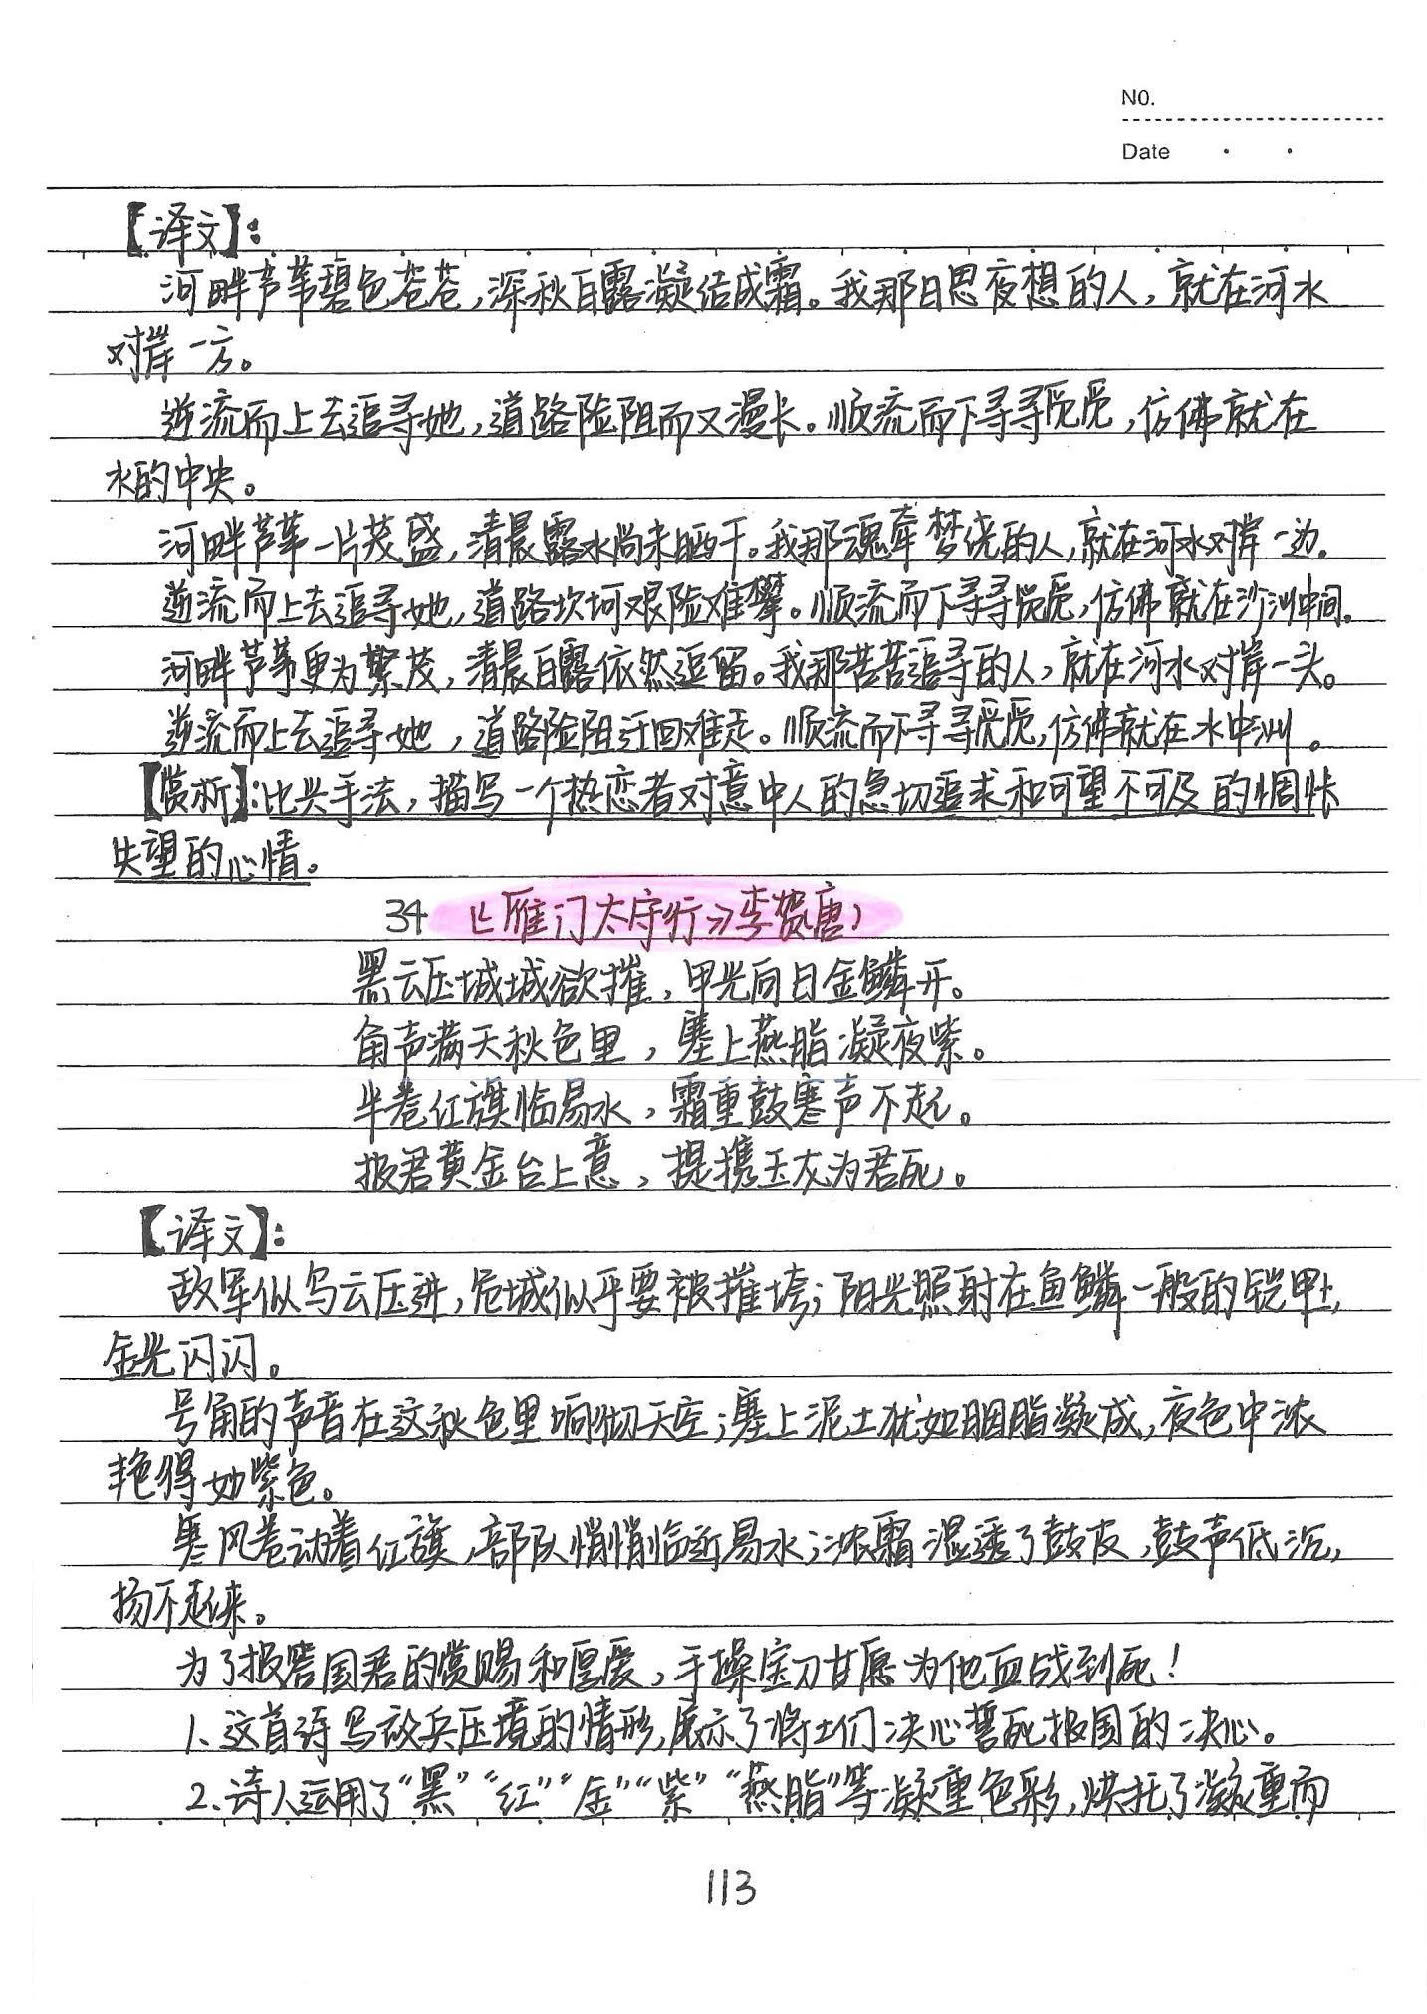 NO.
Date
【译文】:
河畔芦苇碧色苍苍,深秋白露凝结成霜。我那日思夜想的人,就在河水
对岸一方。
逆流而上去追寻她,道路险阻而又漫长。顺流而下寻寻觅觅,仿佛就在
水的中央。
河畔芦苇一片茂盛,清晨露水尚未晒干。我那魂牵梦绕的人,就在河水对岸一边。
逆流而上去追寻她,道路坎坷艰险难攀。顺流而下寻寻觅觅,仿佛就在沙洲中间。
河畔芦苇更为繁茂,清晨白露依然逗留。我那苦苦追寻的人,就在河水对岸一头。
逆流而上去追寻她,道路险阻迂回难走。顺流而下寻寻觅觅,仿佛就在水中洲。
【赏析】:比兴手法,描写一个热恋者对意中人的急切追求和可望不可及的惆怅
失望的心情。
34 《雁门太守行》李贺(唐)
黑云压城城欲摧,甲光向日金鳞开。
角声满天秋色里,塞上燕脂凝夜紫。
半卷红旗临易水,霜重鼓寒声不起。
报君黄金台上意,提携玉龙为君死。
【译文】:
敌军似乌云压进,危城似乎要被摧垮;阳光照射在鱼鳞一般的铠甲上,
金光闪闪。
号角的声音在这秋色里响彻天空;塞上泥土犹如胭脂凝成,夜色中浓
艳得如紫色。
寒风卷动着红旗,部队悄悄临近易水;浓霜湿透了鼓皮,鼓声低沉,
扬不起来。
为了报答国君的赏赐和厚爱,手操宝刀甘愿为他血战到死!
1、这首诗写敌兵压境的情形,展示了将士们决心誓死报国的决心。
2、诗人运用了“黑”“红”“金”“紫”“燕脂”等凝重色彩,烘托了凝重而
113